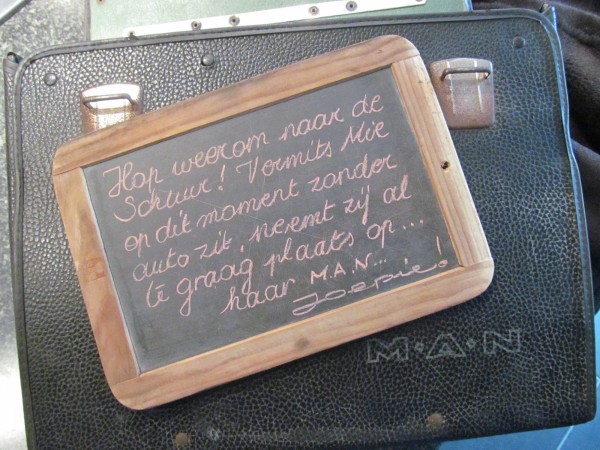 Hop weerom naar de
Schuur! Vermits Mie
op dit moment zonder
auto zit, neemt zij al
te graag plaats op...
haar M.A.N...
Joepie!
M·A·N